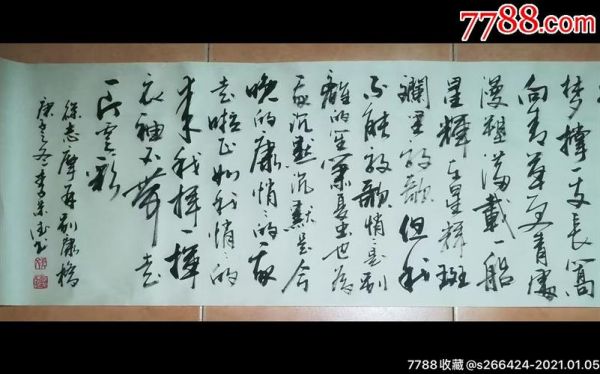 7788.com
梦撑一支長篙
向青草更青處
漫塑满载一船
星輝在星輝斑
斓里放歌但我
不能放歌悄悄是别
離的笙箫夏虫也為
我沉默沉默是今
晚的康悄悄的我
走啦正如我悄悄的
来我挥一挥
衣袖不带走
一片雲彩
徐志摩再别康橋
庚子冬李
7788收藏@s266424-2021.01.05